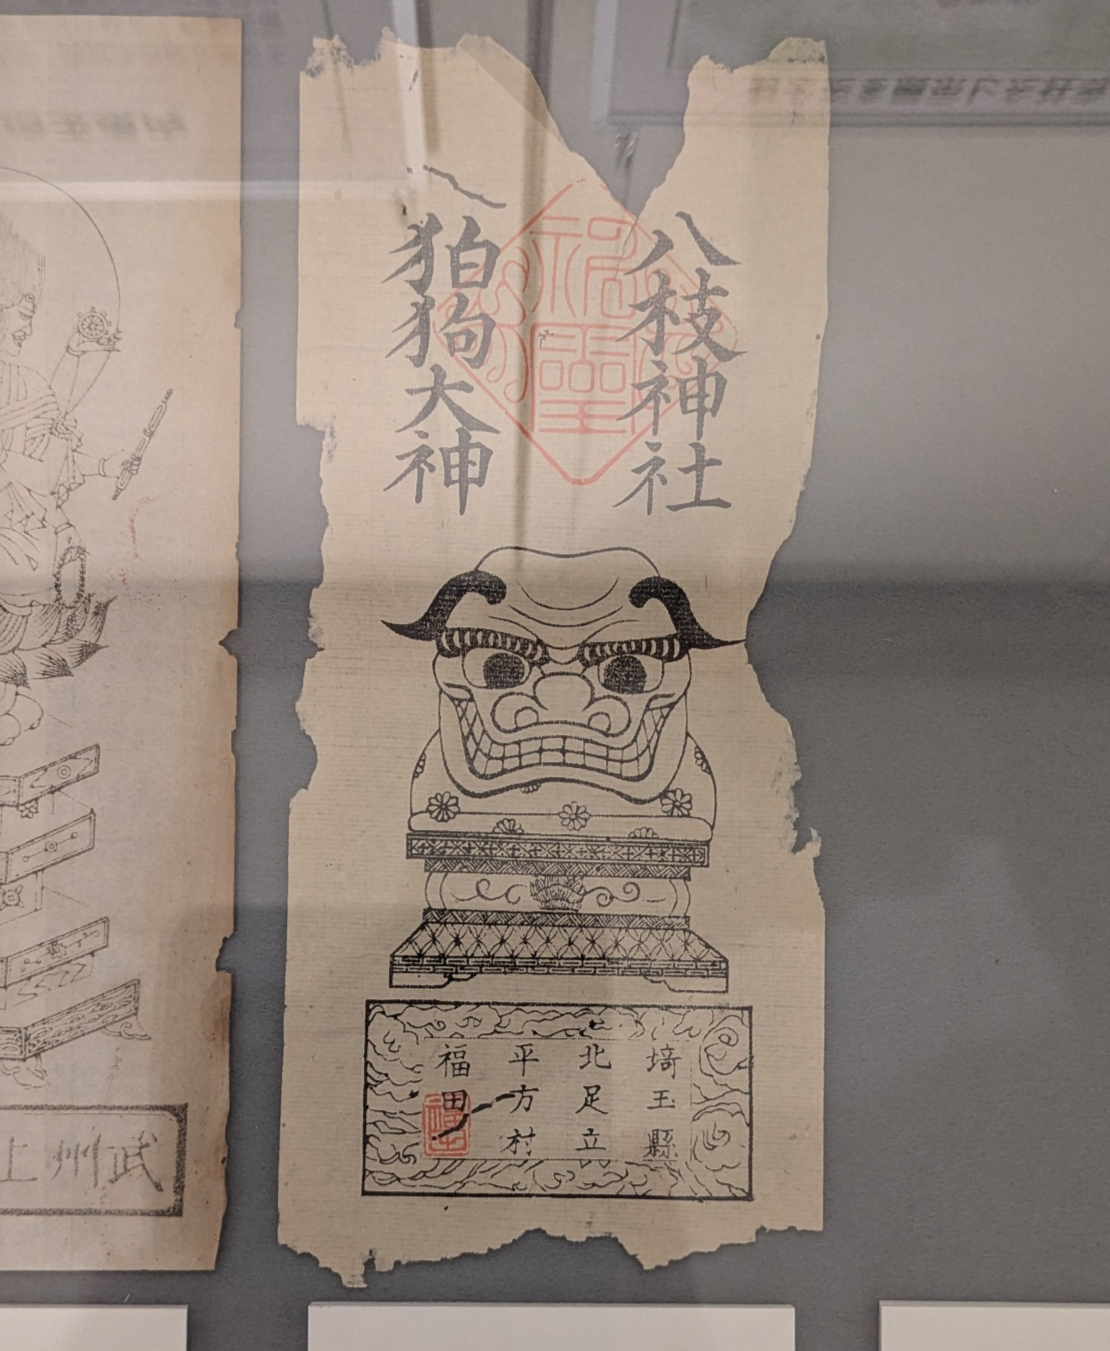 八枝神社
狛狗大神
埼玉縣
北足立
平方村
福田
武州上